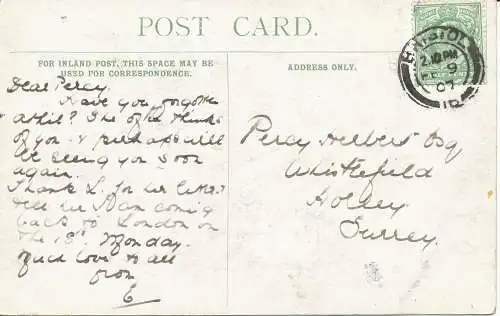 POST CARD.
FOR INLAND POST, THIS SPACE MAY BE
USED FOR CORRESPONDENCE.
ADDRESS ONLY.
BRISTOL
2.10 PM
FE 9
07
Dear Percy.
Have you forgotten
? She often thinks
of you & perhaps will
be seeing you soon
again.
Thank L. for her letter
tell her I am coming
back to London on
the 18th. Monday.
Much love to all
from
E
Percy Herbert Esq
Whistlefield
Horley
Surrey.